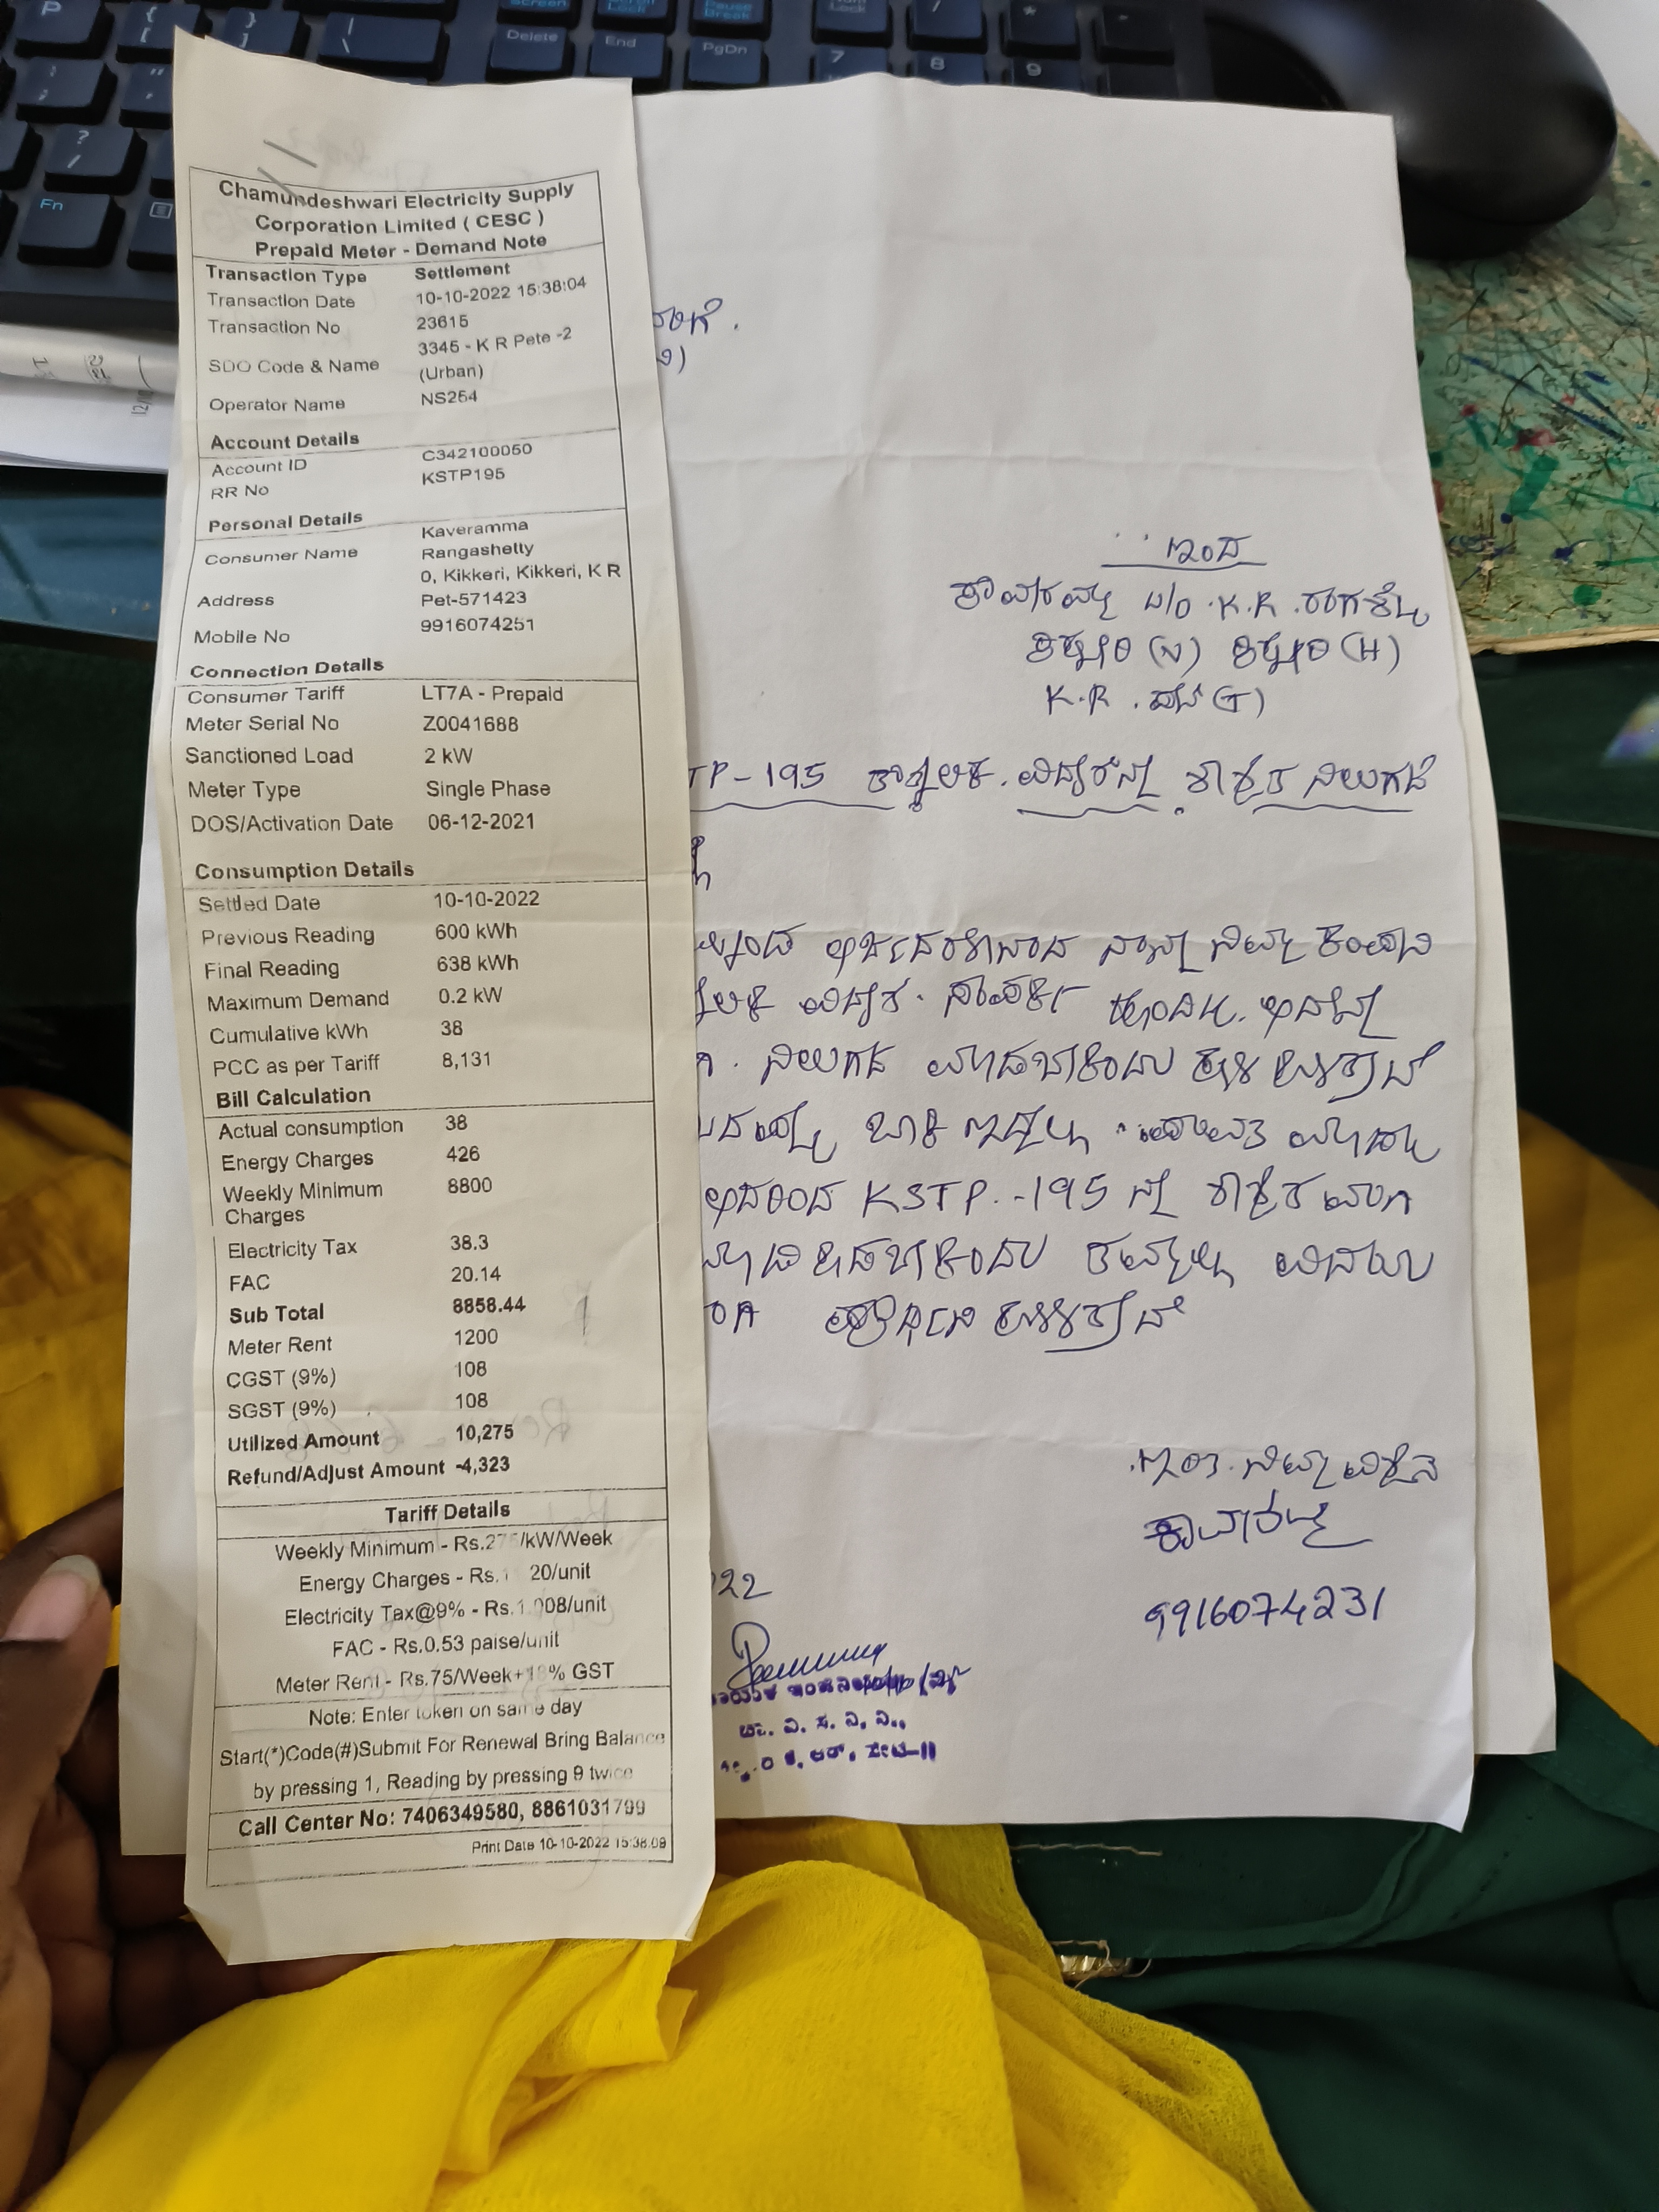 Delete
End
PgDn
Fn
Chamundeshwari Electricity Supply
Corporation Limited ( CESC )
Prepaid Meter - Demand Note
Transaction Type Settlement
Transaction Date 10-10-2022 15:38:04
Transaction No 23615
SDO Code & Name 3345 - K R Pete -2
(Urban)
Operator Name NS254
Account Details
Account ID C342100050
RR No KSTP195
Personal Details
Consumer Name Kaveramma
Rangashetty
Address 0, Kikkeri, Kikkeri, K R
Pet-571423
Mobile No 9916074251
Connection Details
Consumer Tariff LT7A - Prepaid
Meter Serial No Z0041688
Sanctioned Load 2 kW
Meter Type Single Phase
DOS/Activation Date 06-12-2021
Consumption Details
Settled Date 10-10-2022
Previous Reading 600 kWh
Final Reading 638 kWh
Maximum Demand 0.2 kW
Cumulative kWh 38
PCC as per Tariff 8,131
Bill Calculation
Actual consumption 38
Energy Charges 426
Weekly Minimum 8800
Charges
Electricity Tax 38.3
FAC 20.14
Sub Total 8858.44
Meter Rent 1200
CGST (9%) 108
SGST (9%) 108
Utilized Amount 10,275
Refund/Adjust Amount -4,323
Tariff Details
Weekly Minimum - Rs. /kW/Week
Energy Charges - Rs. 20/unit
Electricity Tax@9% - Rs.1.008/unit
FAC - Rs.0.53 paise/unit
Meter Rent - Rs.75/Week+18% GST
Note: Enter token on same day
Start(*)Code(#)Submit For Renewal Bring Balance
by pressing 1, Reading by pressing 9 twice
Call Center No: 7406349580, 8861031799
Print Date 10-10-2022 15:38:09
ಇಂದ
ಕಾವೇರಮ್ಮ W/O K.R. ರಂಗಶೆಟ್ಟಿ
ಕಿಕ್ಕೇರಿ (V) ಕಿಕ್ಕೇರಿ (H)
K.R. ಪೇಟೆ (T)
TP-195 ತಾತ್ಕಾಲಿಕ ವಿದ್ಯುತ್‌ನ್ನು ಶಾಶ್ವತ ನಿಲುಗಡೆ
ನಾನು ನಿಮ್ಮ ಕಂಪನಿ
ವಿದ್ಯುತ್ ಸಂಪರ್ಕ ಹೊಂದಿದ್ದು ಅದನ್ನು
ನಿಲುಗಡೆ ಮಾಡಬೇಕೆಂದು
ಬಾಕಿ ಇದ್ದಲ್ಲಿ
ಆದ್ದರಿಂದ KSTP-195 ನ್ನು ಶಾಶ್ವತವಾಗಿ
ತಮ್ಮಲ್ಲಿ ವಿನಯ
ಇಂತಿ ನಿಮ್ಮ ವಿಶ್ವಾಸಿ
ಕಾವೇರಮ್ಮ
9916074231
022
ಚಾ. ವಿ. ಸ. ನಿ. ನಿ.,
ಕೆ. ಆರ್. ಪೇಟೆ-II